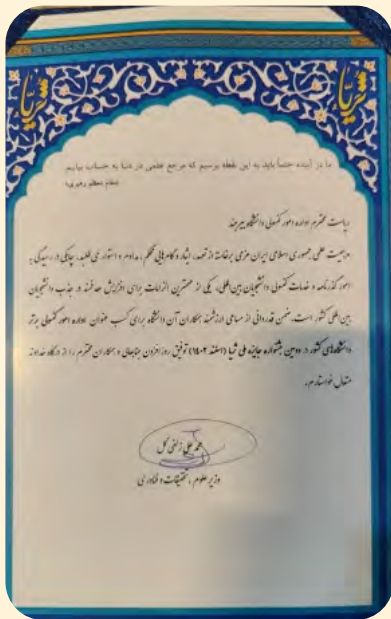 ثریا
ثریا
ما در آینده حتماً باید به این نقطه برسیم که مرجع علمی در دنیا به حساب بیاییم
مقام معظم رهبری
ریاست محترم اداره امور کنسولی دانشگاه بیرجند
مرجعیت علمی جمهوری اسلامی ایران عزیز برخاسته از تعهد، ایثار و گام‌هایی محکم، مداوم و استوار می طلبد. چابکی در رسیدگی به
امور گذرنامه و خدمات کنسولی دانشجویان بین‌المللی، یکی از مهمترین الزامات برای افزایش هدفمند در جذب دانشجویان
بین‌المللی کشور است. ضمن قدردانی از مساعی ارزشمند همکاران آن دانشگاه برای کسب عنوان اداره امور کنسولی برتر
دانشگاه‌های کشور در دومین جشنواره جایزه ملی ثریا (اسفند ۱۴۰۲) توفیق روزافزون جنابعالی و همکاران محترم را از درگاه خداوند
متعال خواستارم.
محمد علی زلفی گل
وزیر علوم، تحقیقات و فناوری